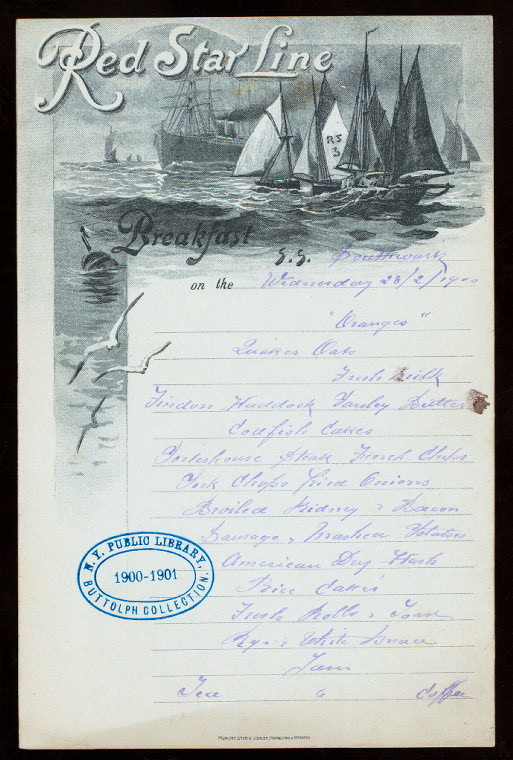 Red Star Line
RS
3
Breakfast
S.S. Southwark
on the Wednesday 28/2/1900
"Oranges"
Quaker Oats
Fresh Milk
Findon Haddock Parsley Butter
Codfish Cakes
Porterhouse Steak French Chips
Pork Chops Fried Onions
Broiled Kidney & Bacon
Sausage, Mashed Potatoes
American Dry Hash
Rice Cakes
Fresh Rolls & Toast
Rye & White Bread
Jam
Tea Coffee
N.Y. PUBLIC LIBRARY,
1900-1901
BUTTOLPH COLLECTION.